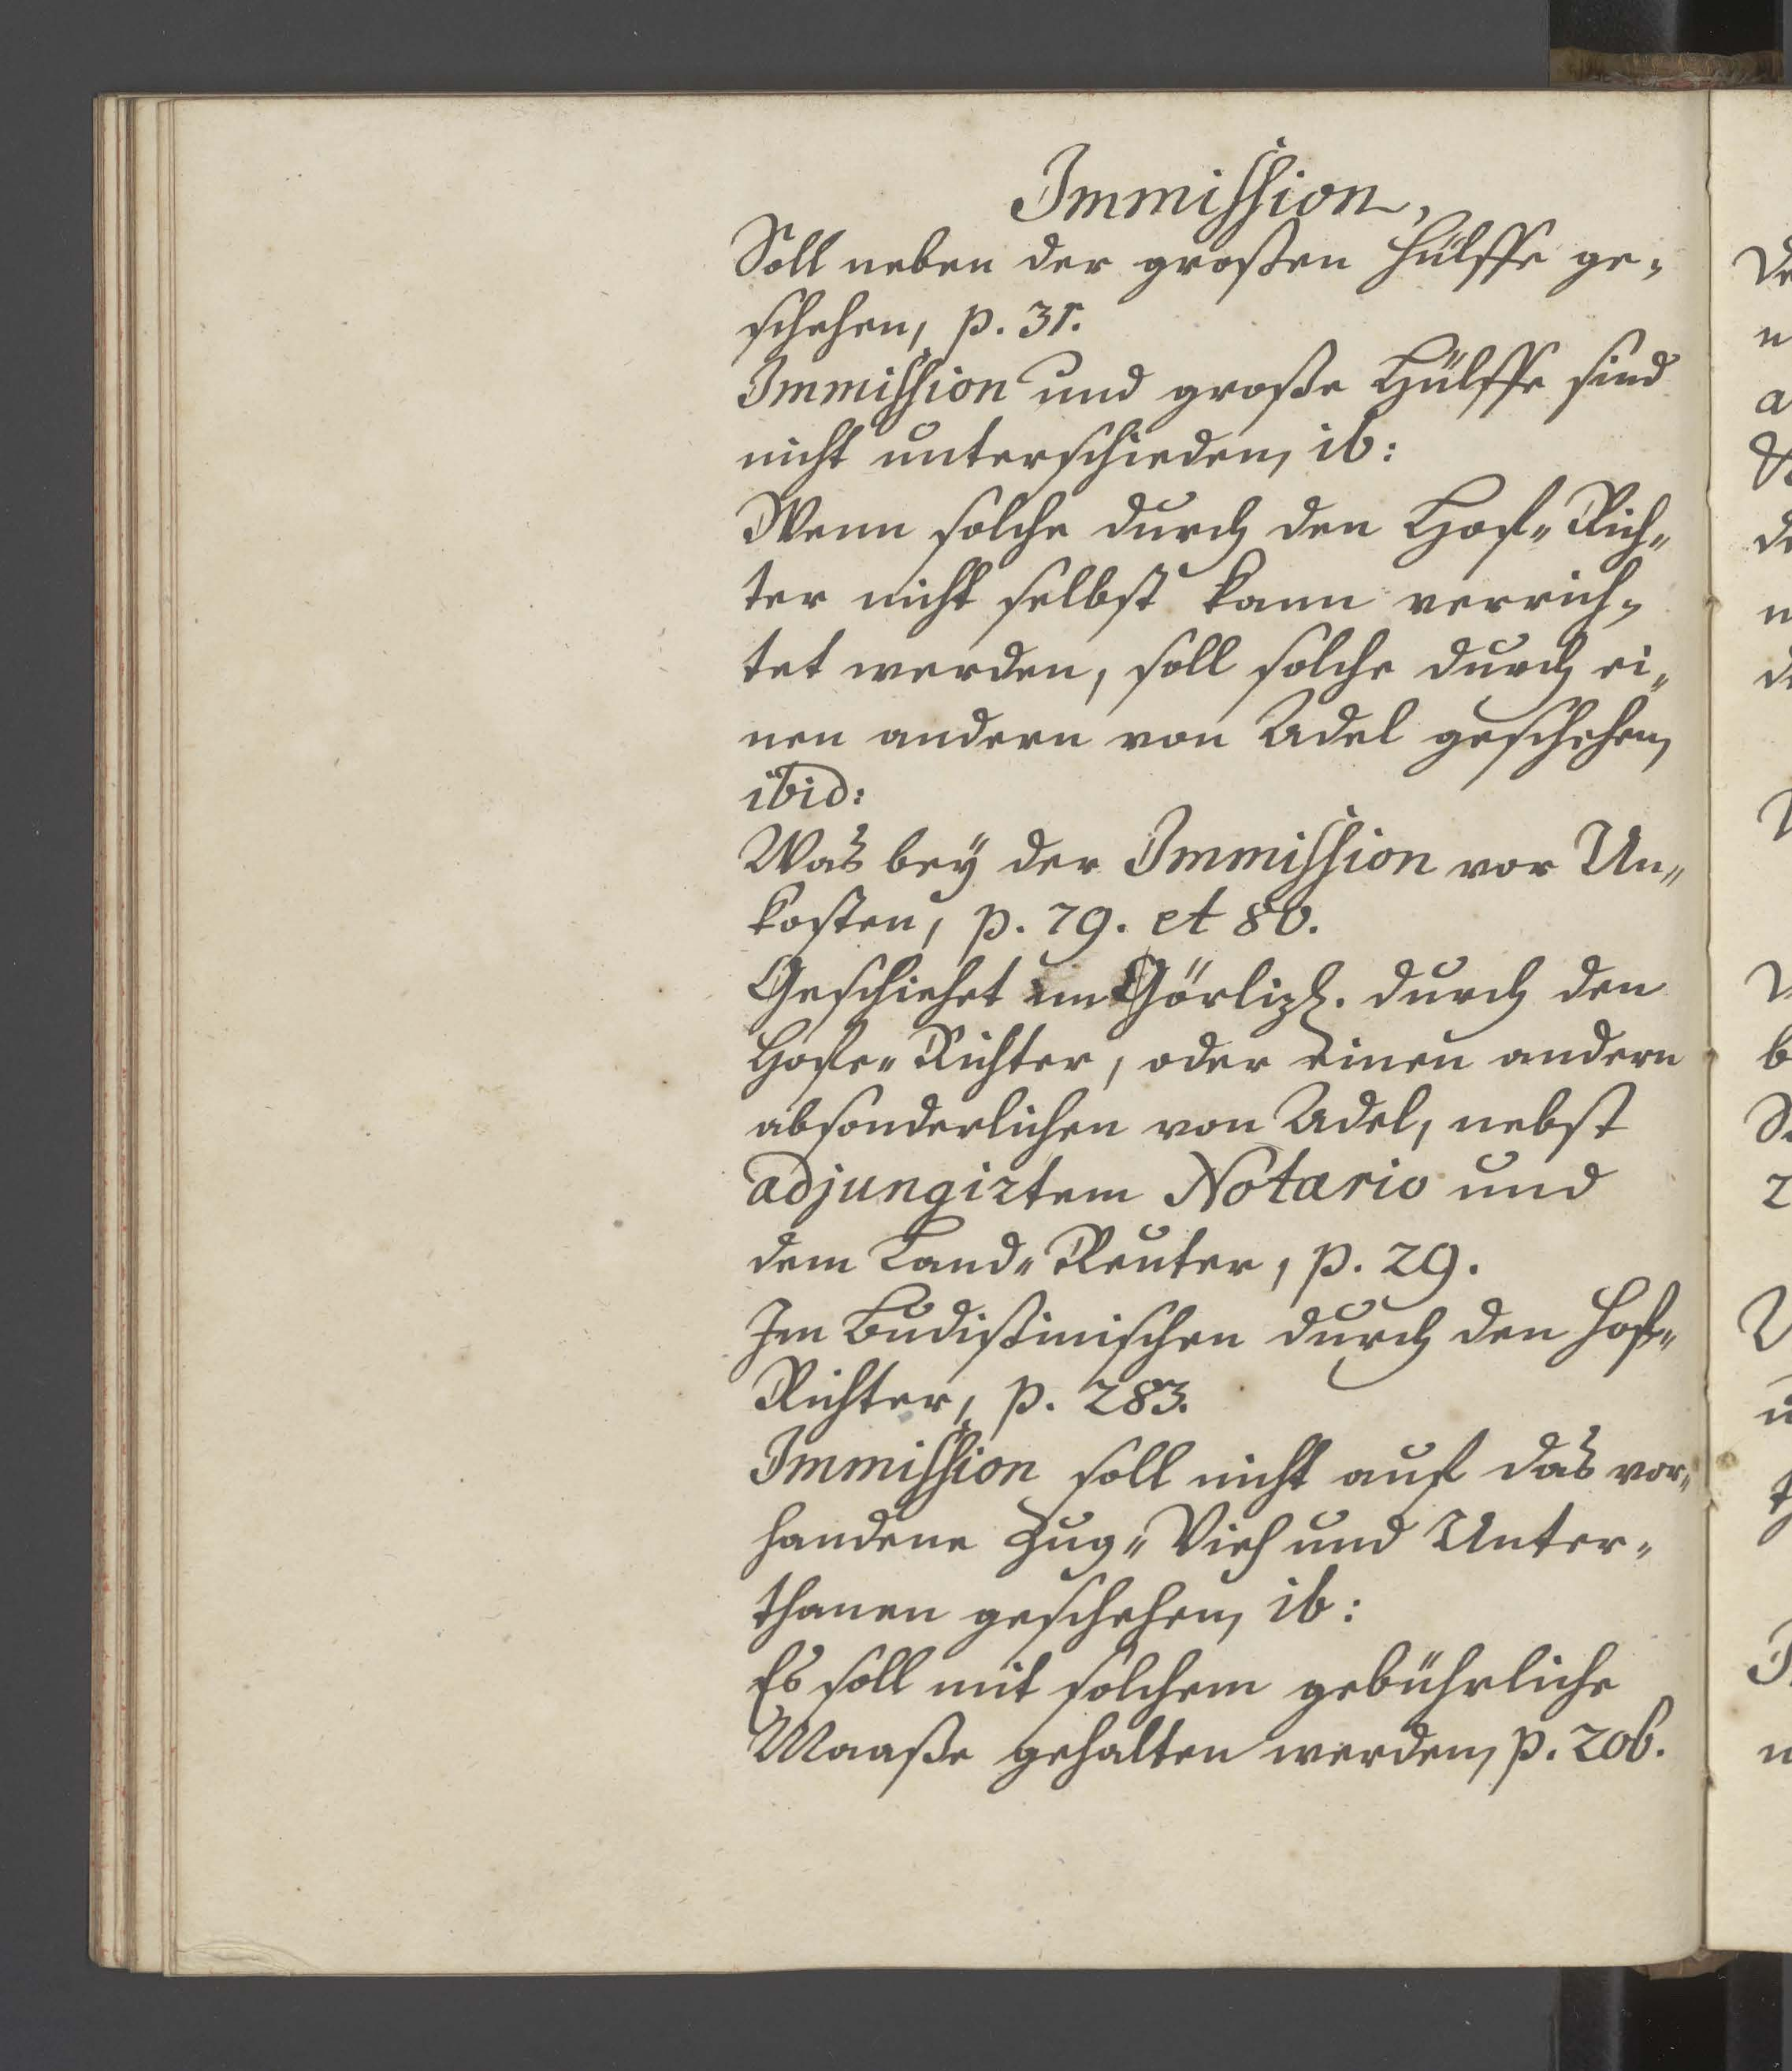 Immission,
Soll neben der großen Hülffe ge-
schehen, p. 31.
Immission und große Hülffe sind
nicht unterschieden, ib:
Wenn solche durch den Hof-Rich-
ter nicht selbst kann verrich-
tet werden, soll solche durch ei-
nen andern von Adel geschehen,
ibid:
Was bey der Immission vor Un-
kosten, p. 79. et 80.
Geschiehet im Görlizl. durch den
Hofe-Richter, oder einen andern
absonderlichen von Adel, nebst
adjungirtem Notario und
dem Land-Reuter, p. 29.
Im Budißinischen durch den Hof-
Richter, p. 283.
Immission soll nicht auf das vor-
handene Zug-Vieh und Unter-
thanen geschehen, ib:
Es soll mit solchem gebührliche
Maaße gehalten werden, p. 206.